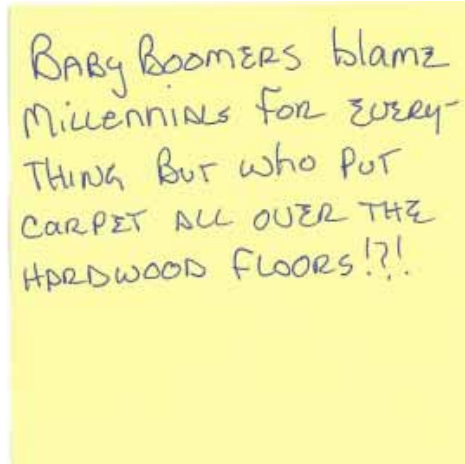 Baby Boomers blame
Millennials for every-
thing but who put
carpet all over the
hardwood floors!?!